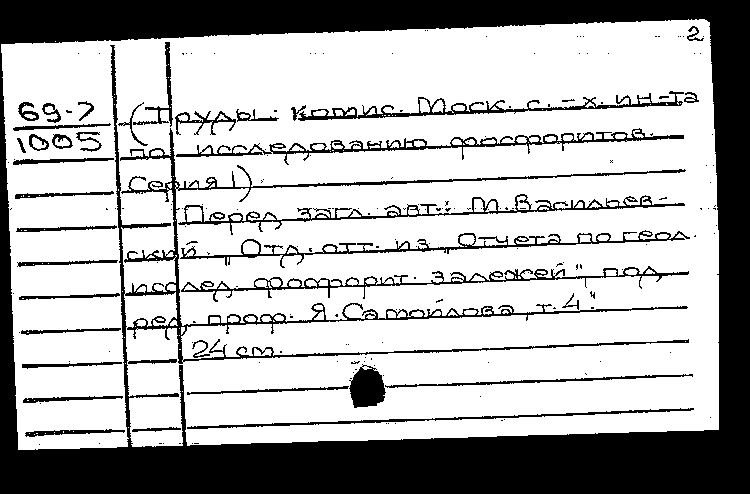 2
69-7
1005
(Труды. Комис. Моск. с.-х. ин-та
по исследованию фосфоритов.
Серия 1)
Перед загл. авт.: М. Васильев-
ский. „Отд. отт. из „Отчета по геол.
исслед. фосфорит. залежей", под
ред. проф. Я. Самойлова, т. 4".
24 см.